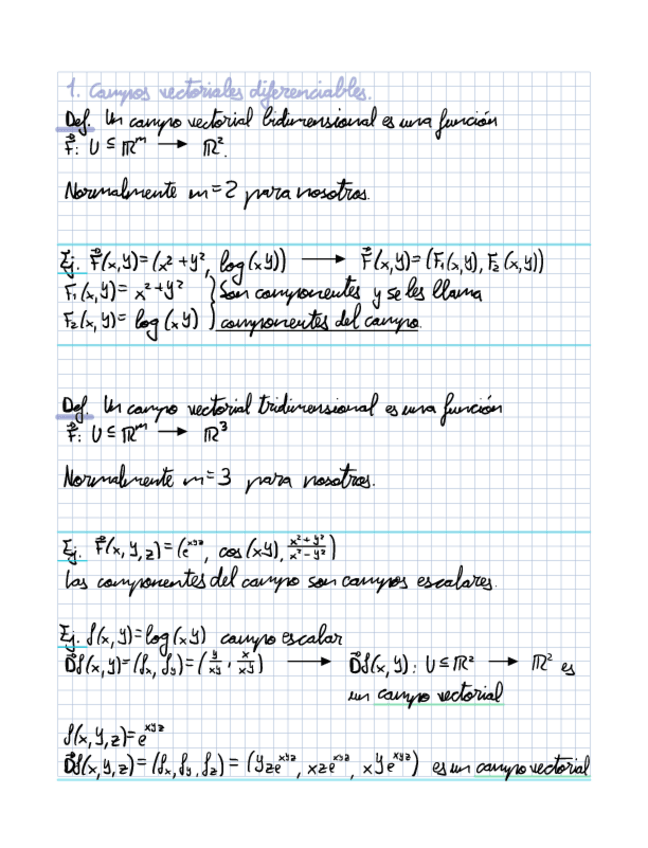 1. Campos vectoriales diferenciables.
Def. Un campo vectorial bidimensional es una función
F⃗: U ⊆ ℝᵐ → ℝ².
Normalmente m=2 para nosotros.
Ej. F⃗(x,y)=(x²+y², log(xy)) → F⃗(x,y)=(F₁(x,y), F₂(x,y))
F₁(x,y)= x²+y² } Son componentes y se les llama
F₂(x,y)= log(xy) } componentes del campo.
Def. Un campo vectorial tridimensional es una función
F⃗: U ⊆ ℝᵐ → ℝ³
Normalmente m=3 para nosotros.
Ej. F⃗(x,y,z)=(e^{xyz}, cos(xy), \frac{x²+y²}{x²-y²})
Las componentes del campo son campos escalares.
Ej. f(x,y)=log(xy) campo escalar
D⃗f(x,y)=(fₓ, f_y)=(\frac{y}{xy}, \frac{x}{xy}) → D⃗f(x,y): U⊆ℝ² → ℝ² es
un campo vectorial
f(x,y,z)=e^{xyz}
D⃗f(x,y,z)=(fₓ,f_y,f_z)=(yze^{xyz}, xze^{xyz}, xye^{xyz}) es un campo vectorial